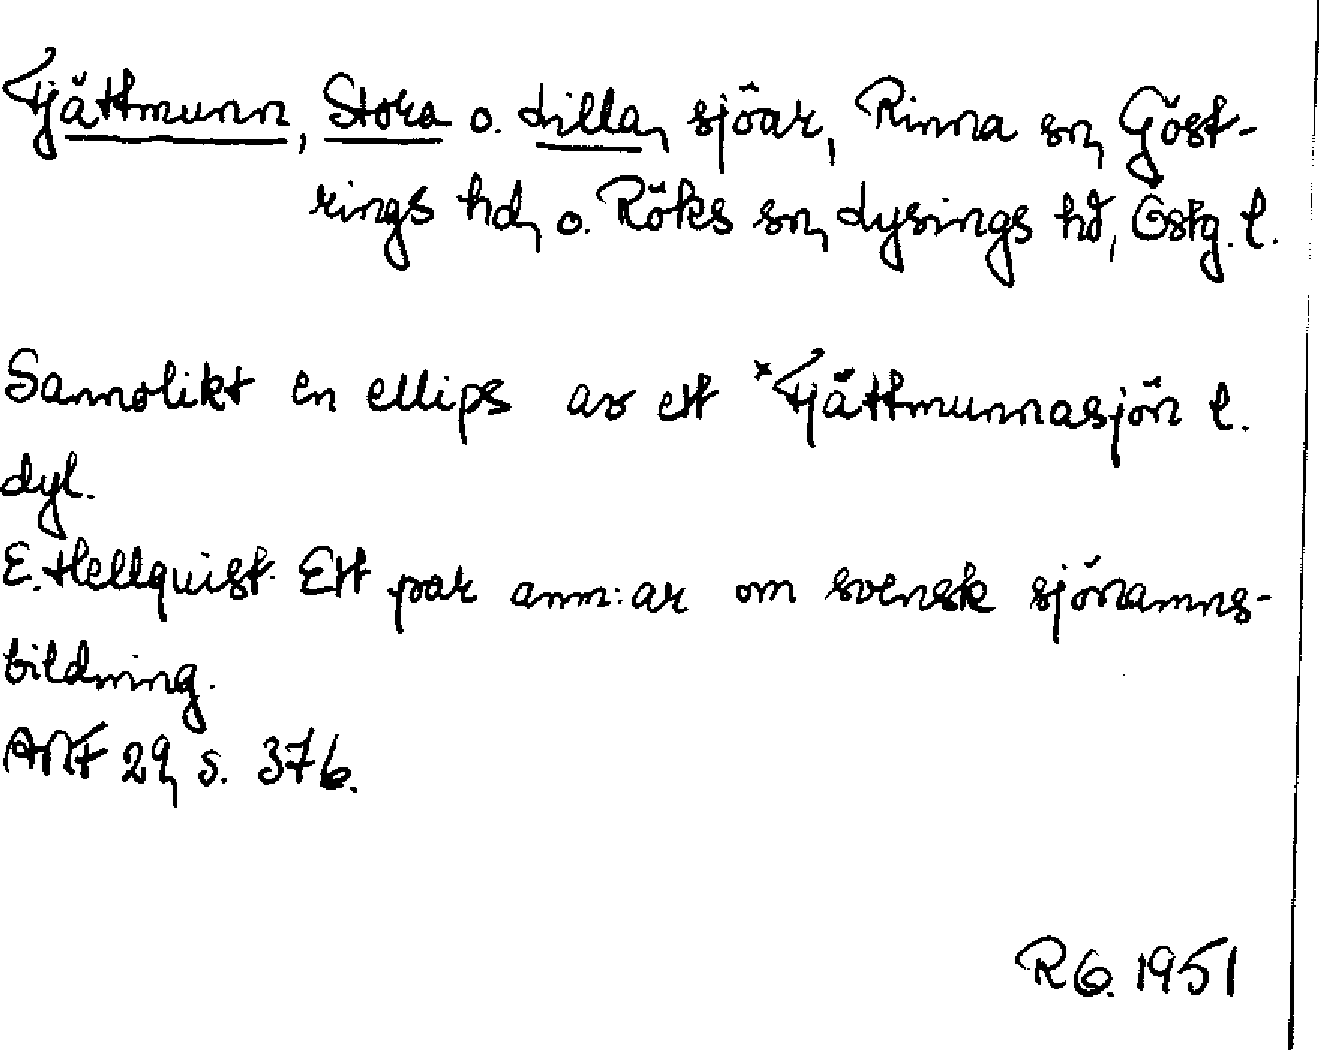 Tjättmunn, Stora o. Lilla, sjöar, Rinna sn, Göst-
rings hd, o. Röks sn, Lysings hd, Östg. l.
Sannolikt en ellips av ett *Tjättmunnasjön l.
dyl.
E. Hellquist. Ett par anm:ar om svensk sjönamns-
bildning.
ANF 29, s. 376.
RG. 1951